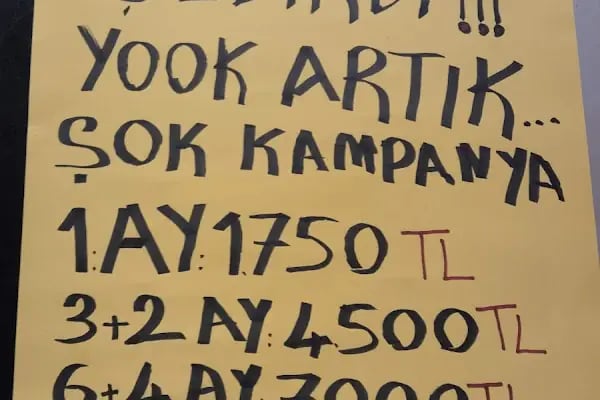 YOOK ARTIK...
ŞOK KAMPANYA
1.AY: 1.750 TL
3+2 AY: 4.500 TL
6+4 AY: 7000 TL